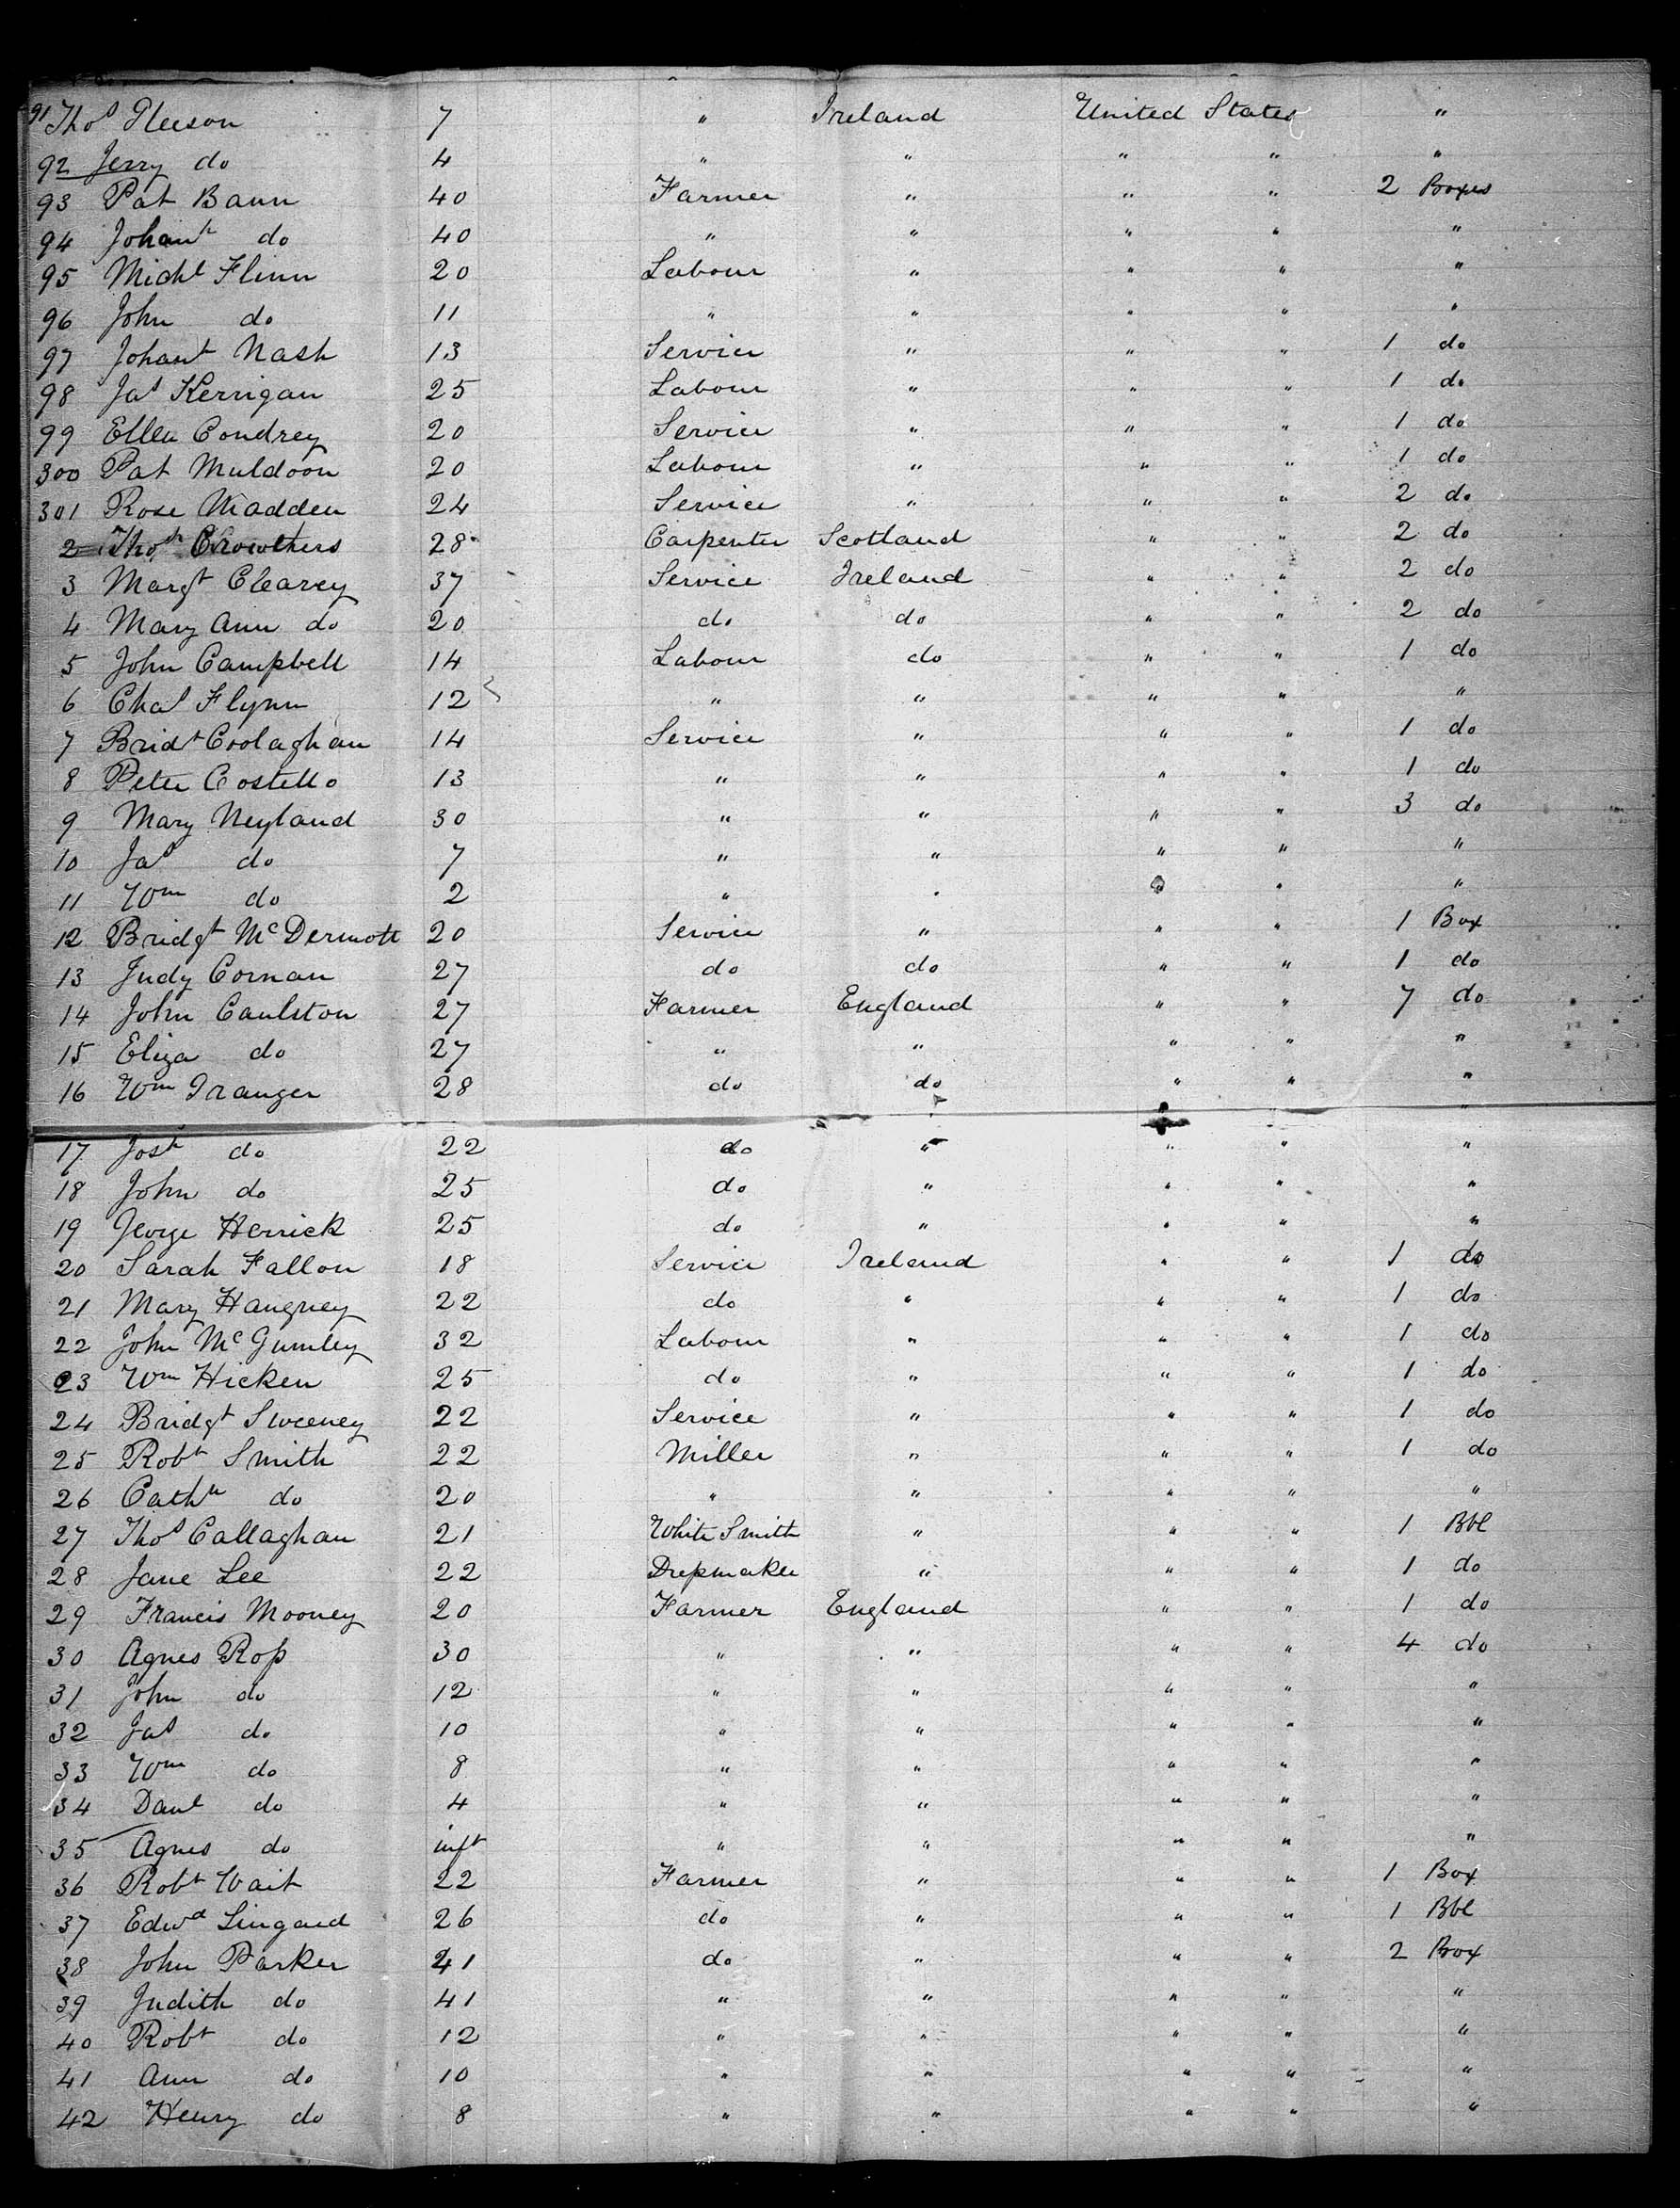 91 Thos Gleeson 7 " Ireland United States "
92 Jerry do 4 " " " " "
93 Pat Bann 40 Farmer " " " 2 Boxes
94 Johant do 40 " " " " "
95 Michl Flinn 20 Labour " " " "
96 John do 11 " " " " "
97 Johant Nash 13 Service " " " 1 do
98 Jas Kerrigan 25 Labour " " " 1 do
99 Ellen Condrey 20 Service " " " 1 do
300 Pat Muldoon 20 Labour " " " 1 do
301 Rose Madden 24 Service " " " 2 do
2 Thos Crowthers 28 Carpenter Scotland " " 2 do
3 Margt Clearey 37 Service Ireland " " 2 do
4 Mary Ann do 20 do do " " 2 do
5 John Campbell 14 Labour do " " 1 do
6 Chas Flynn 12 " " " " "
7 Bridt Coolaghan 14 Service " " " 1 do
8 Peter Costello 13 " " " " 1 do
9 Mary Neyland 30 " " " " 3 do
10 Jas do 7 " " " " "
11 Wm do 2 " " " " "
12 Bridgt McDermott 20 Service " " " 1 Box
13 Judy Cornan 27 do do " " 1 do
14 John Caulston 27 Farmer England " " 7 do
15 Eliza do 27 " " " " "
16 Wm Tranger 28 do do " " "
17 Josh do 22 do " " " "
18 John do 25 do " " " "
19 George Herrick 25 do " " " "
20 Sarah Fallon 18 Service Ireland " " 1 do
21 Mary Hangney 22 do " " " 1 do
22 John McGumley 32 Labour " " " 1 do
23 Wm Hicken 25 do " " " 1 do
24 Bridgt Sweeney 22 Service " " " 1 do
25 Robt Smith 22 Miller " " " 1 do
26 Cathn do 20 " " " " "
27 Thos Callaghan 21 White Smith " " " 1 Bbl
28 Jane Lee 22 Dressmaker " " " 1 do
29 Francis Mooney 20 Farmer England " " 1 do
30 Agnes Ross 30 " " " " 4 do
31 John do 12 " " " " "
32 Jas do 10 " " " " "
33 Wm do 8 " " " " "
34 Danl do 4 " " " " "
35 Agnes do inft " " " " "
36 Robt Wait 22 Farmer " " " 1 Box
37 Edwd Lingard 26 do " " " 1 Bbl
38 John Parker 41 do " " " 2 Box
39 Judith do 41 " " " " "
40 Robt do 12 " " " " "
41 Ann do 10 " " " " "
42 Henry do 8 " " " " "